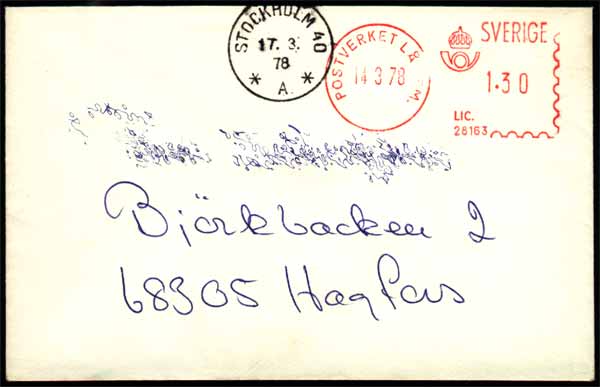 STOCKHOLM 40
17. 3.
78
* A. *
POSTVERKET L& M.
14 3 78
SVERIGE
1.30
LIC.
28163
Björkbacken 2
68305 Hagfors